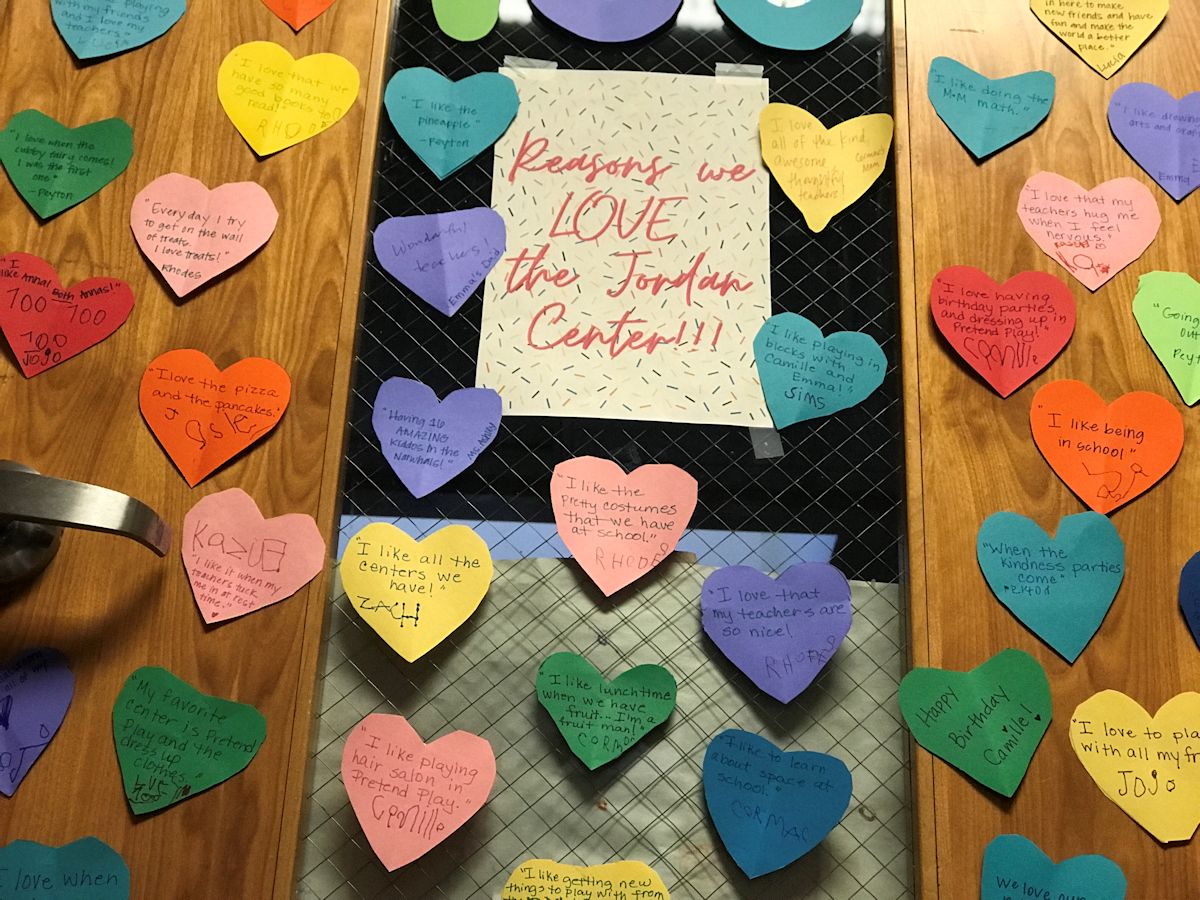 playing
with my friends
and I love my
teachers."
"I love that we
have so many
good books to
read!"
RHODES
"I love when the
cubby fairy comes!
I was the first
one."
-Peyton
"Everyday I try
to get on the wall
of treats.
I love treats!"
Rhodes
"I
like Anna! Both Annas!"
100 100
100
JOJO
"I love the pizza
and the pancakes."
"I like it when my
teachers tuck
me in at rest
time."
"My favorite
center is Pretend
Play and the
dress up
clothes."
I love when
"I like the
pineapple"
-Peyton
Wonderful
teachers!
Emma's Dad
"Having 16
AMAZING
kiddos in the
Narwhals!"
Ms. Ashley
Reasons we
LOVE
the Jordan
Center!!!
I love
all of the kind,
awesome
thoughtful
teachers!
Cormac's
Mom
"I like playing in
blocks with
Camille and
Emma!"
SIMS
"I like all the
centers we
have!"
ZACH
"I like the
pretty costumes
that we have
at school."
RHODES
"I love that
my teachers are
so nice!
RHODES
"I like lunchtime
when we have
fruit... I'm a
fruit man!"
CORMAC
"I like playing
hair salon in
Pretend Play."
Camille
"I like to learn
about space at
school."
CORMAC
"I like getting new
things to play with from
in here to make
new friends and have
fun and make the
world a better
place."
Lucia
"I like doing the
M+M math."
"I like drawing
arts and
Emma
"I love that my
teachers hug me
when I feel
nervous."
"I love having
birthday parties,
and dressing up in
Pretend Play!"
Camille
"Going
out
Peyt
"I like being
in school."
"When the
kindness parties
come"
Happy
Birthday
Camille!
"I love to pla
with all my fr
JOJO
We love our